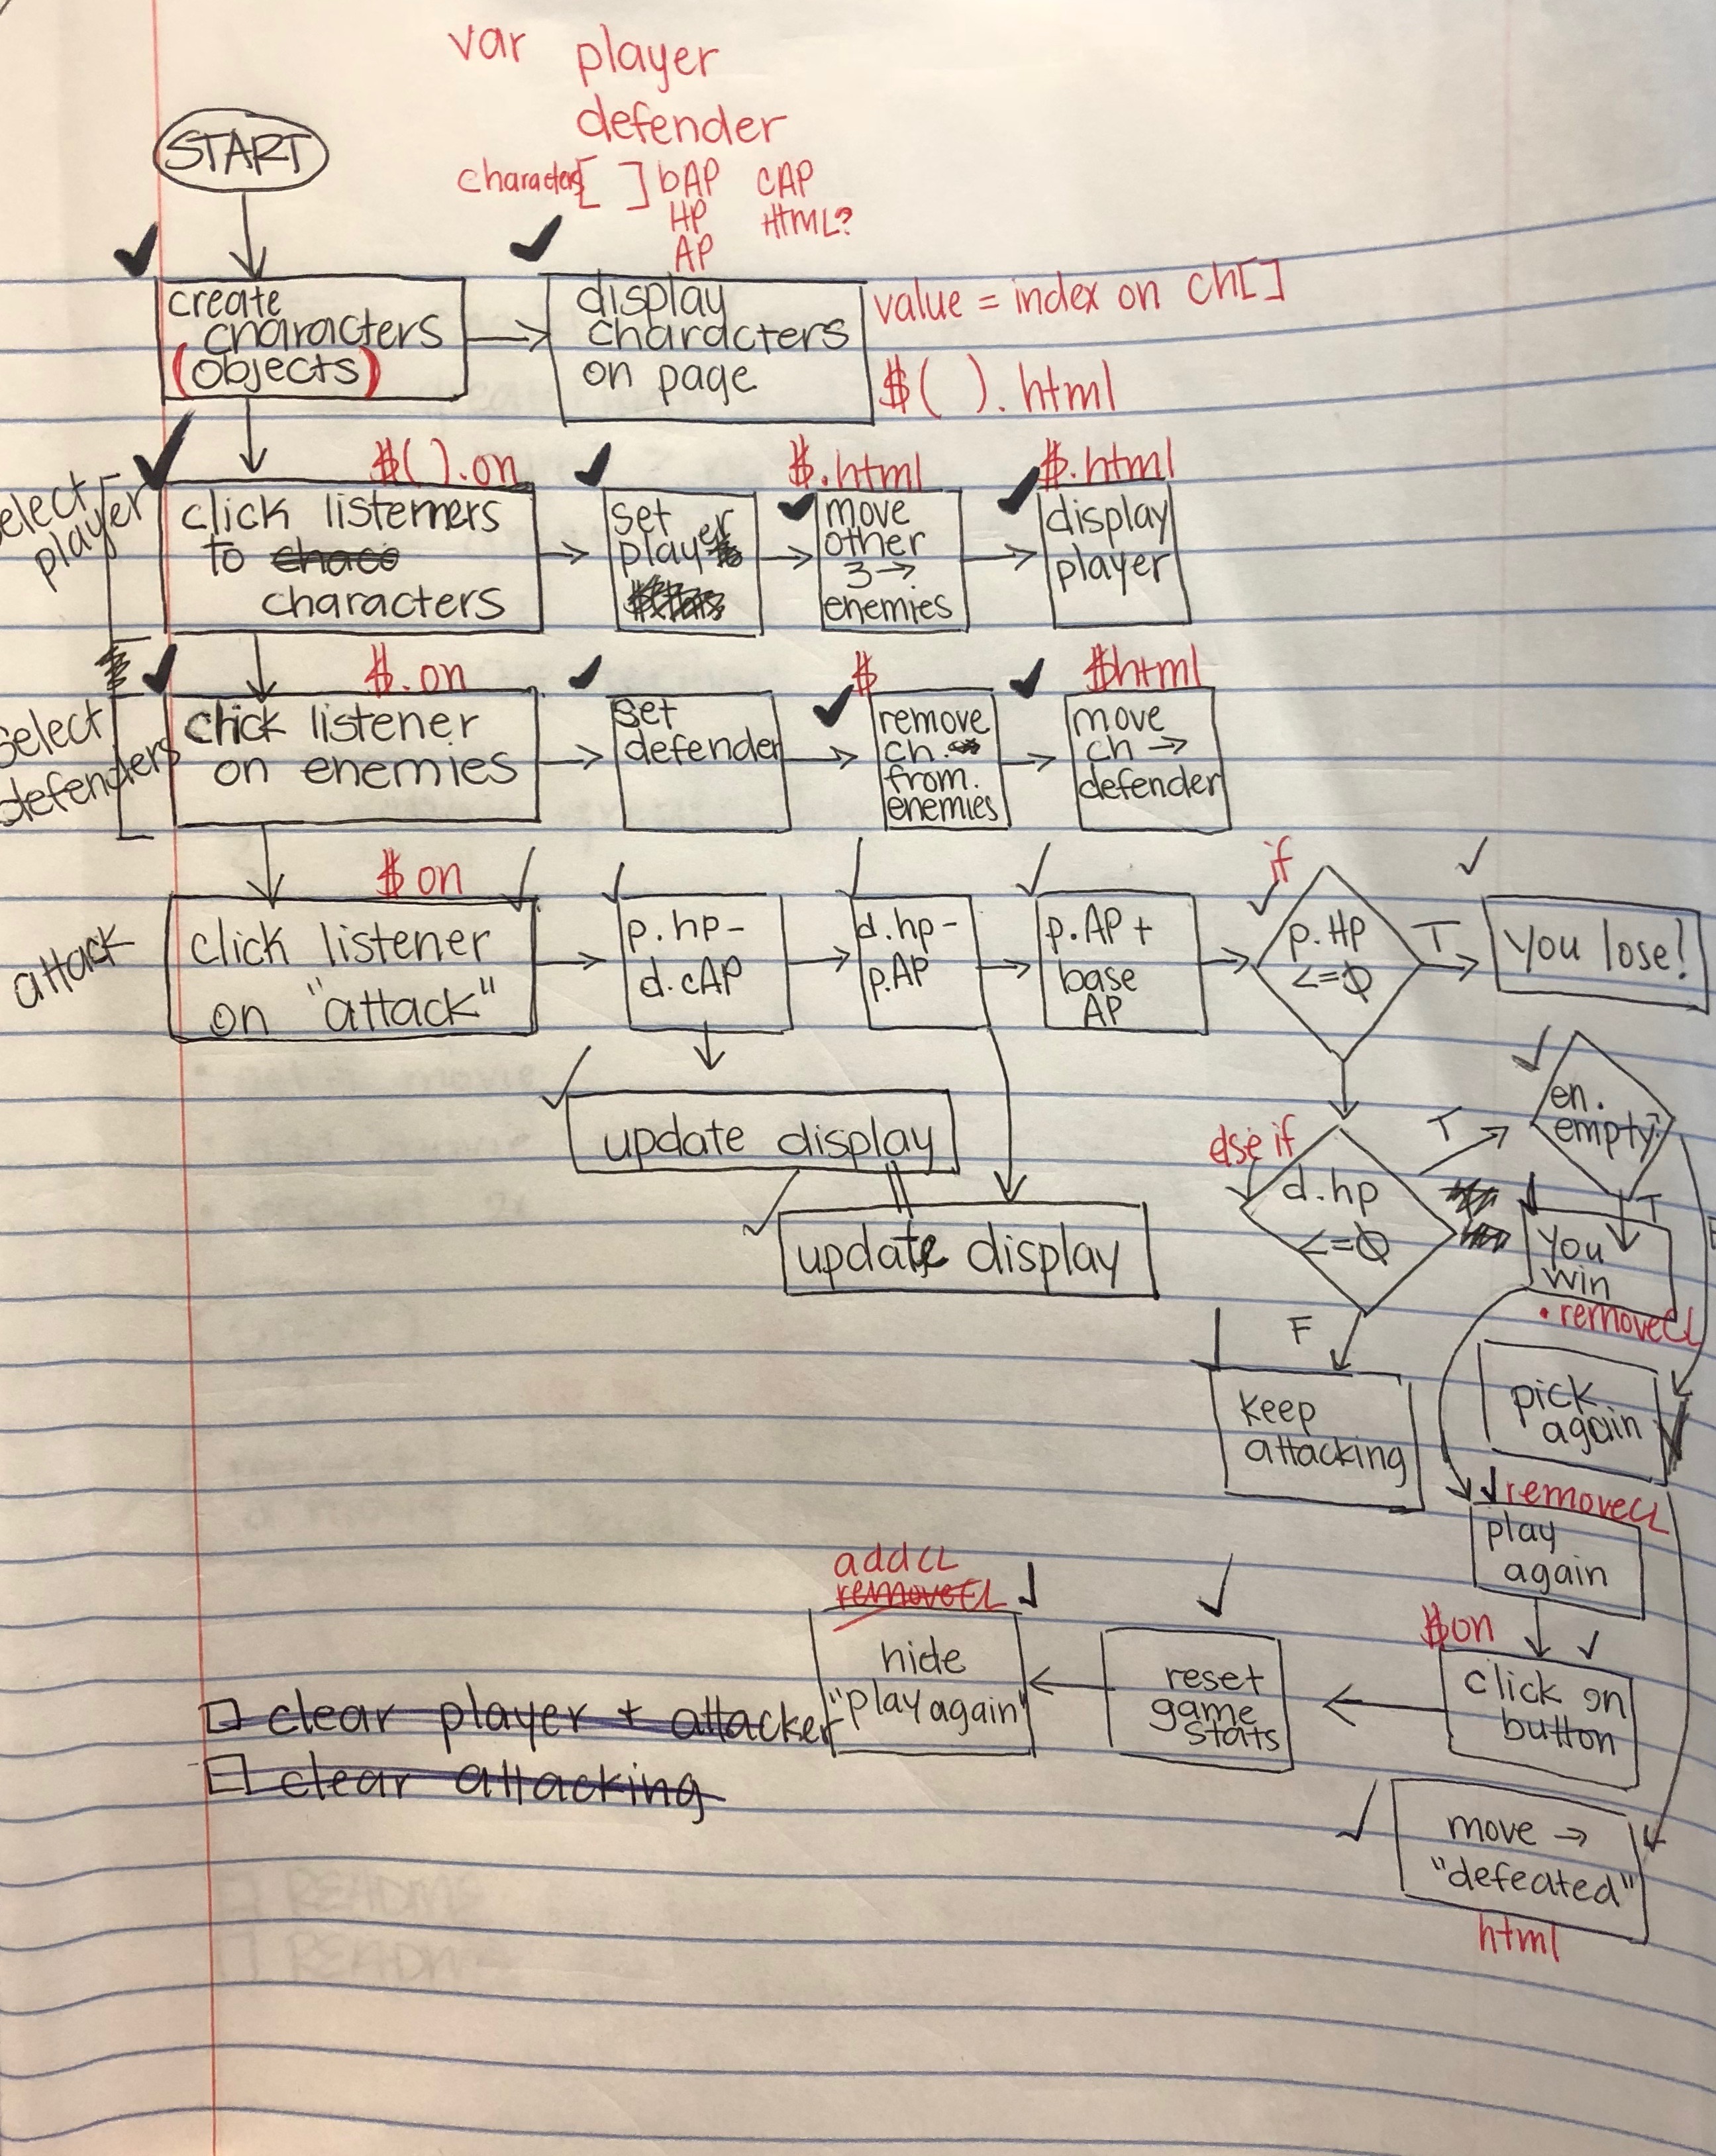 var player
defender
characters[ ] bAP cAP
HP HTML?
AP
START
create
characters
(objects)
display
characters
on page
value = index on ch[]
$( ).html
select
player
$( ).on
click listerners
to chaco
characters
set
player
$.html
move
other
3 →
enemies
$.html
display
player
select
defenders
$.on
click listener
on enemies
set
defender
$
remove
ch.
from.
enemies
$html
move
ch →
defender
attack
$ on
click listener
on "attack"
p.hp-
d.cAP
d.hp-
p.AP
p.AP +
base
AP
if
p.HP
<=0
T
you lose!
update display
update display
else if
d.hp
<=0
T
en.
empty?
T
You
win
• removeCL
F
keep
attacking
pick
again
removeCL
play
again
$on
click on
button
reset
game
stats
addCL
removeCL
hide
"play again"
clear player + attacker
clear attacking
move →
"defeated"
html